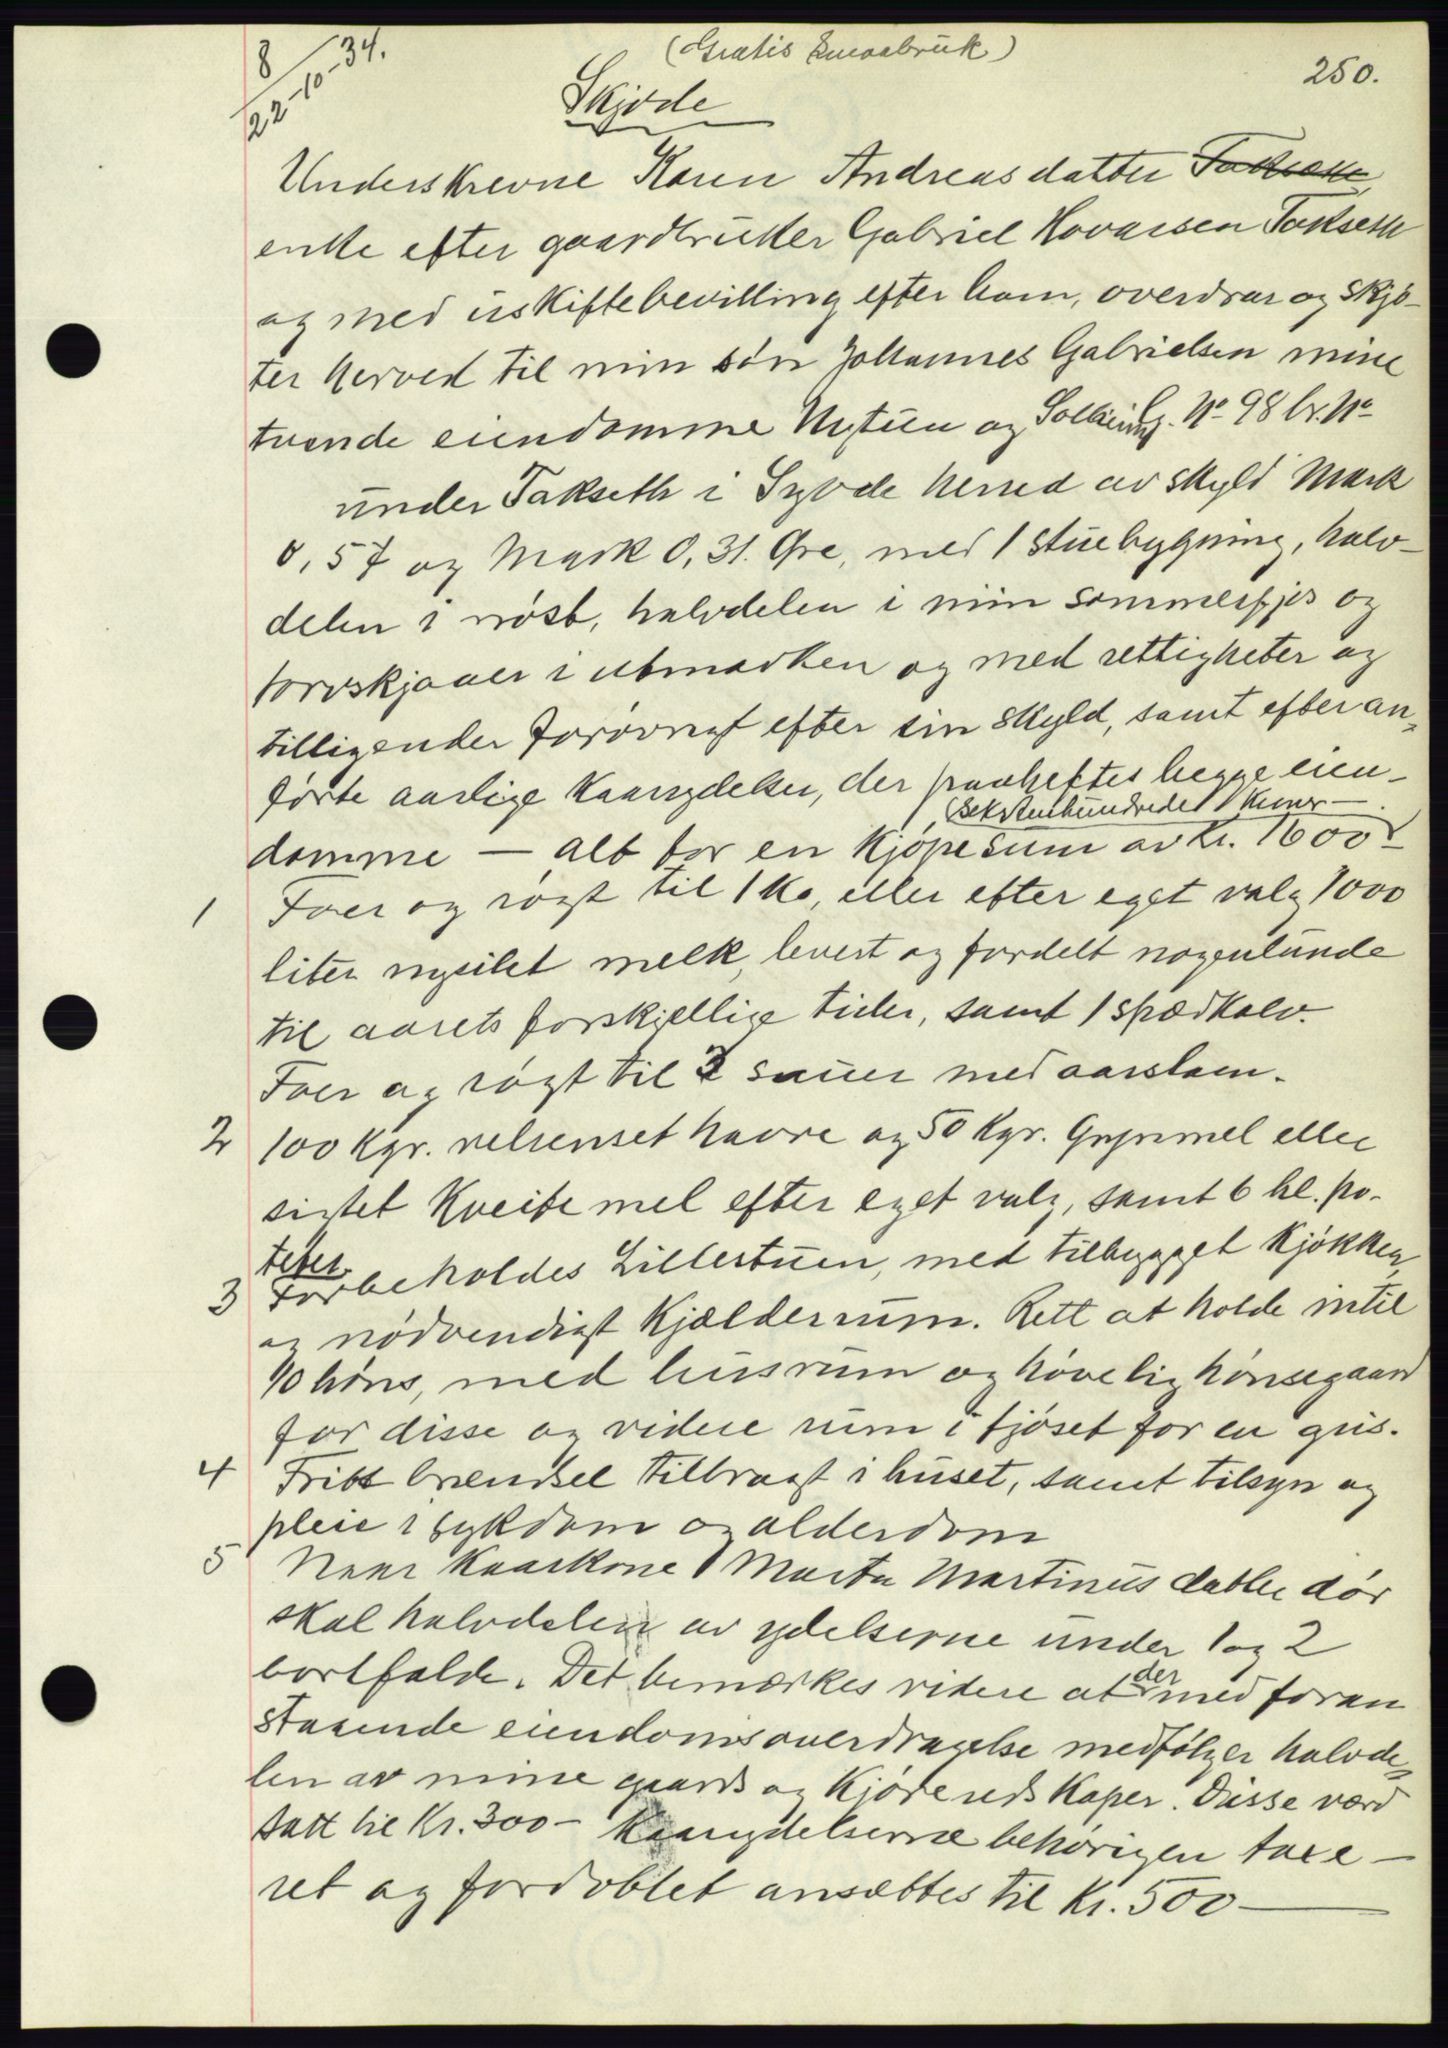 8
22-10-34.
(Gratis Smaabruk)
250.
Skjøde
Underskrevne Karen Andreasdatter
enke efter gaardbruker Gabriel Hovarsen Takseth
og med uskiftebevilling efter ham, overdrar og skjø-
ter herved til min søn Johannes Gabrielsen mine
tvende eiendomme Nytun og G. No 98 br. No
under Takseth i Syvde herred av skyld Mark
0,57 og Mark 0,31 Øre, med 1 stuebygning, halv-
delen i nøst, halvdelen i min sommerfjøs og
torvskjaaer i utmarken og med rettigheter og
tilligender forøvrigt efter sin skyld, samt efteran-
førte aarlige kaarydelser, der paaheftes begge eien-
sekstenhundrede Kroner -
domme - alt for en kjøpesum av Kr. 1600 -
1 Foer og røgt til 1 ko, eller efter eget valg 1000
liter nysilet melk, levert og fordelt nogenlunde
til aarets forskjellige tider, samt 1 spædkalv.
Foer og røgt til sauer med aarslam.
2 100 Kgr. velrenset havre og 50 Kgr. Grynmel eller
sigtet Kveitemel efter eget valg, samt 6 hl. po-
teter.
3 Forbeholdes Lillestuen, med tilbygget kjøkken,
og nødvendigt kjælderrum. Rett at holde intil
10 høns, med husrum og høvelig hønsegaard
for disse og videre rum i fjøset for en gris.
4 Fritt brændsel tilbragt i huset, samt tilsyn og
pleie i sykdom og alderdom
5 Naar Kaarkone Marta Martinusdatter dør
skal halvdelen av ydelserne under 1 og 2
bortfalde. Det bemærkes videre at der med foran
staaende eiendomsoverdragelse medfølger halvde-
len av mine gaards og Kjøreredskaper. Disse værd
satt til Kr. 300 - Kaarydelserne behørigen taxe-
ret og fordoblet ansættes til Kr. 500 -